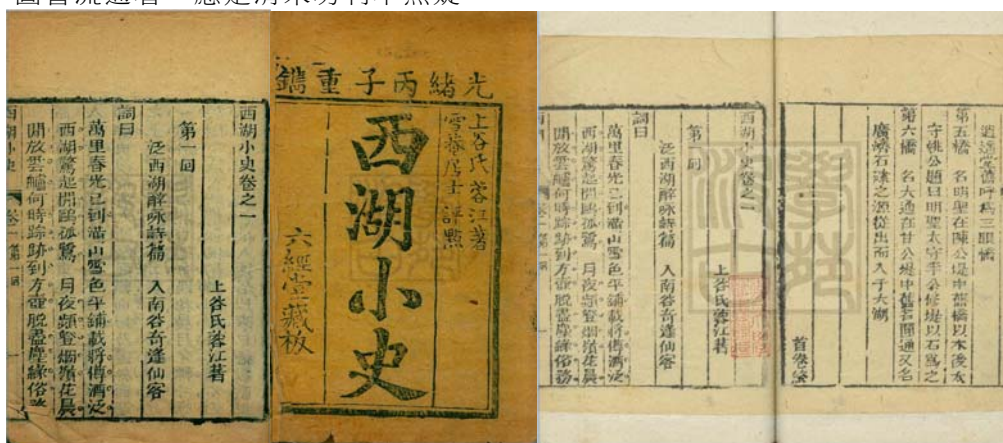 光緒丙子重鐫
上谷氏蓉江著
雪菴居士評點
西湖小史
六經堂藏板
西湖小史卷之一
上谷氏蓉江著
第一回
泛西湖醉咏詩篇 入南谷奇逢仙客
詞曰
萬里春光已到滿山雪色平鋪載將傳酒泛
西湖驚起閒鷗孤鷺 月夜頻登烟嶺花晨
開放雲艫何時踪跡到方壺脫盡塵緣俗務
第五橋 名明聖在陳公堤中舊橋以木後太
守姚公題曰明聖太守李公修堤以石爲之
第六橋 名大通在甘公堤中舊名開通又名
廣濟石埭之源從出而入于大湖
首卷終
西湖小史卷之一
上谷氏蓉江著
第一回
泛西湖醉咏詩篇 入南谷奇逢仙客
詞曰
萬里春光已到滿山雪色平鋪載將傳酒泛
西湖驚起閒鷗孤鷺 月夜頻登烟嶺花晨
開放雲艫何時踪跡到方壺脫盡塵緣俗務